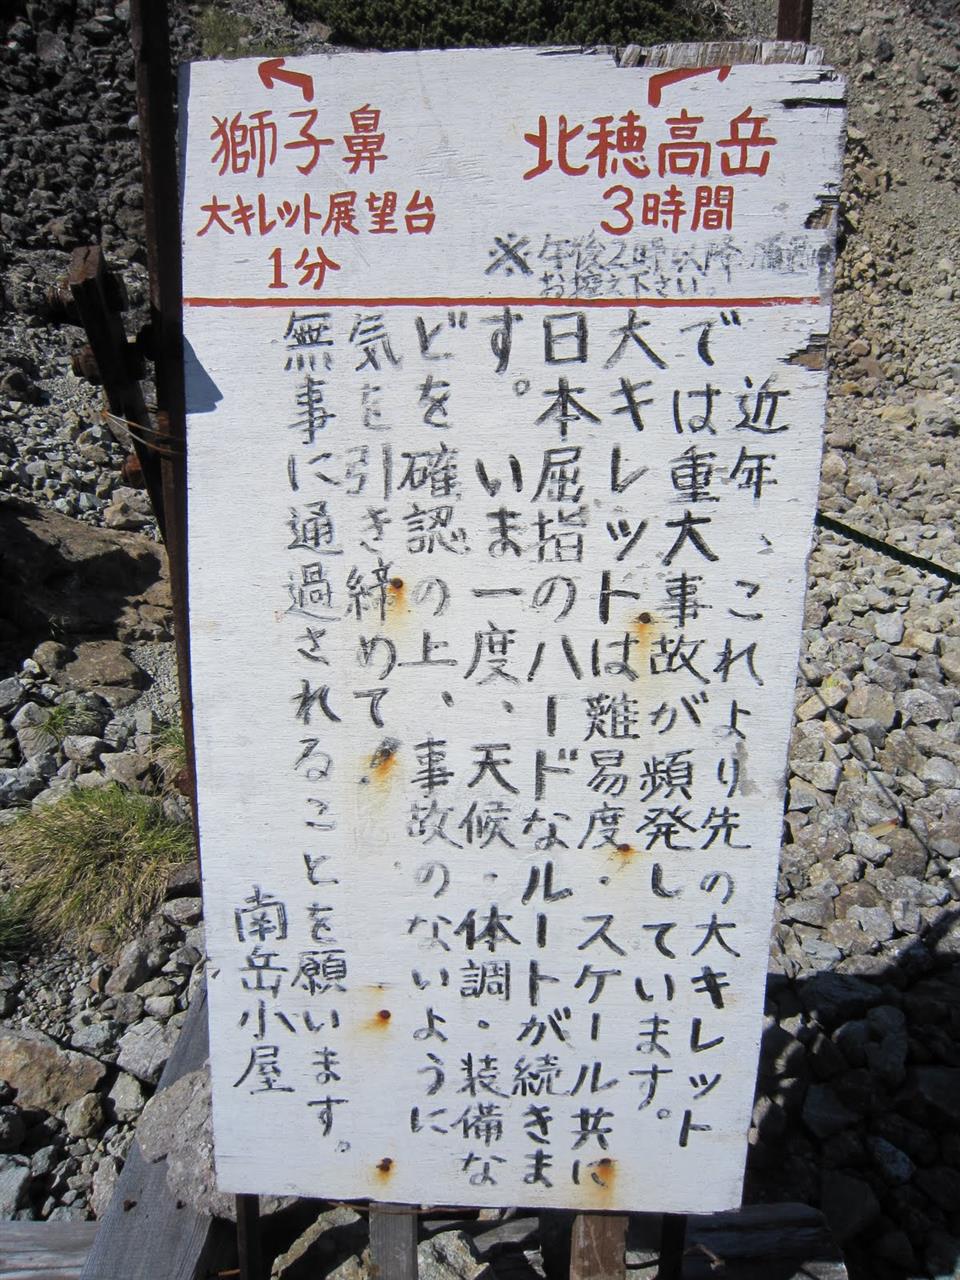 獅子鼻
大キレット展望台
1分
北穂高岳
3時間
※午後2時以降の通過は
お控え下さい。
近年、これより先の大キレット
では重大事故が頻発しています。
大キレットは難易度・スケール共に
日本屈指のハードなルートが続きま
す。いま一度、天候・体調・装備な
どを確認の上、事故のないように
気を引き締めて、
無事に通過されることを願います。
南岳小屋